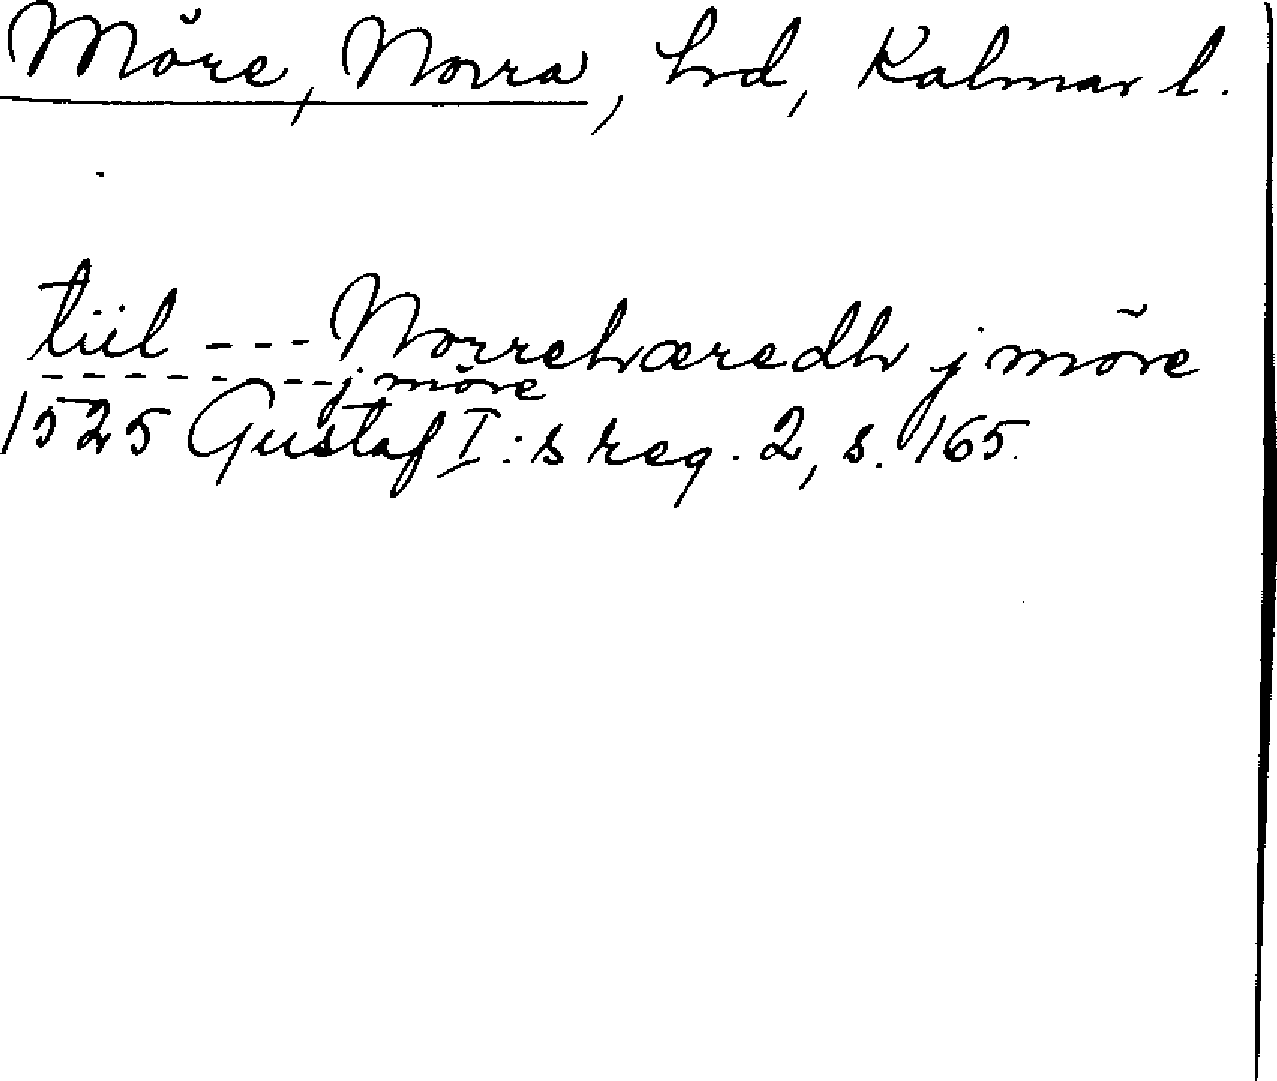 Möre, Norra, hrd, Kalmar l.
tiil --- Norrehæredh j möre
- - - - - - - - j möre
1525 Gustaf I:s reg. 2, s. 165.